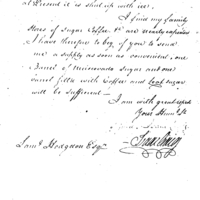 at Present it is shut up with ice.
I find my family
stores of Sugar Coffee &c are nearly expended
I have therefore to beg of you to send
me a supply as soon as convenient, one
Barrel of Muscovado Sugar and one
Barrel fill'd with Coffee and Loaf Sugar
will be sufficient —
I am with great respect
Your Hume St
Isaac Craig
Saml Hodgdon Esqr